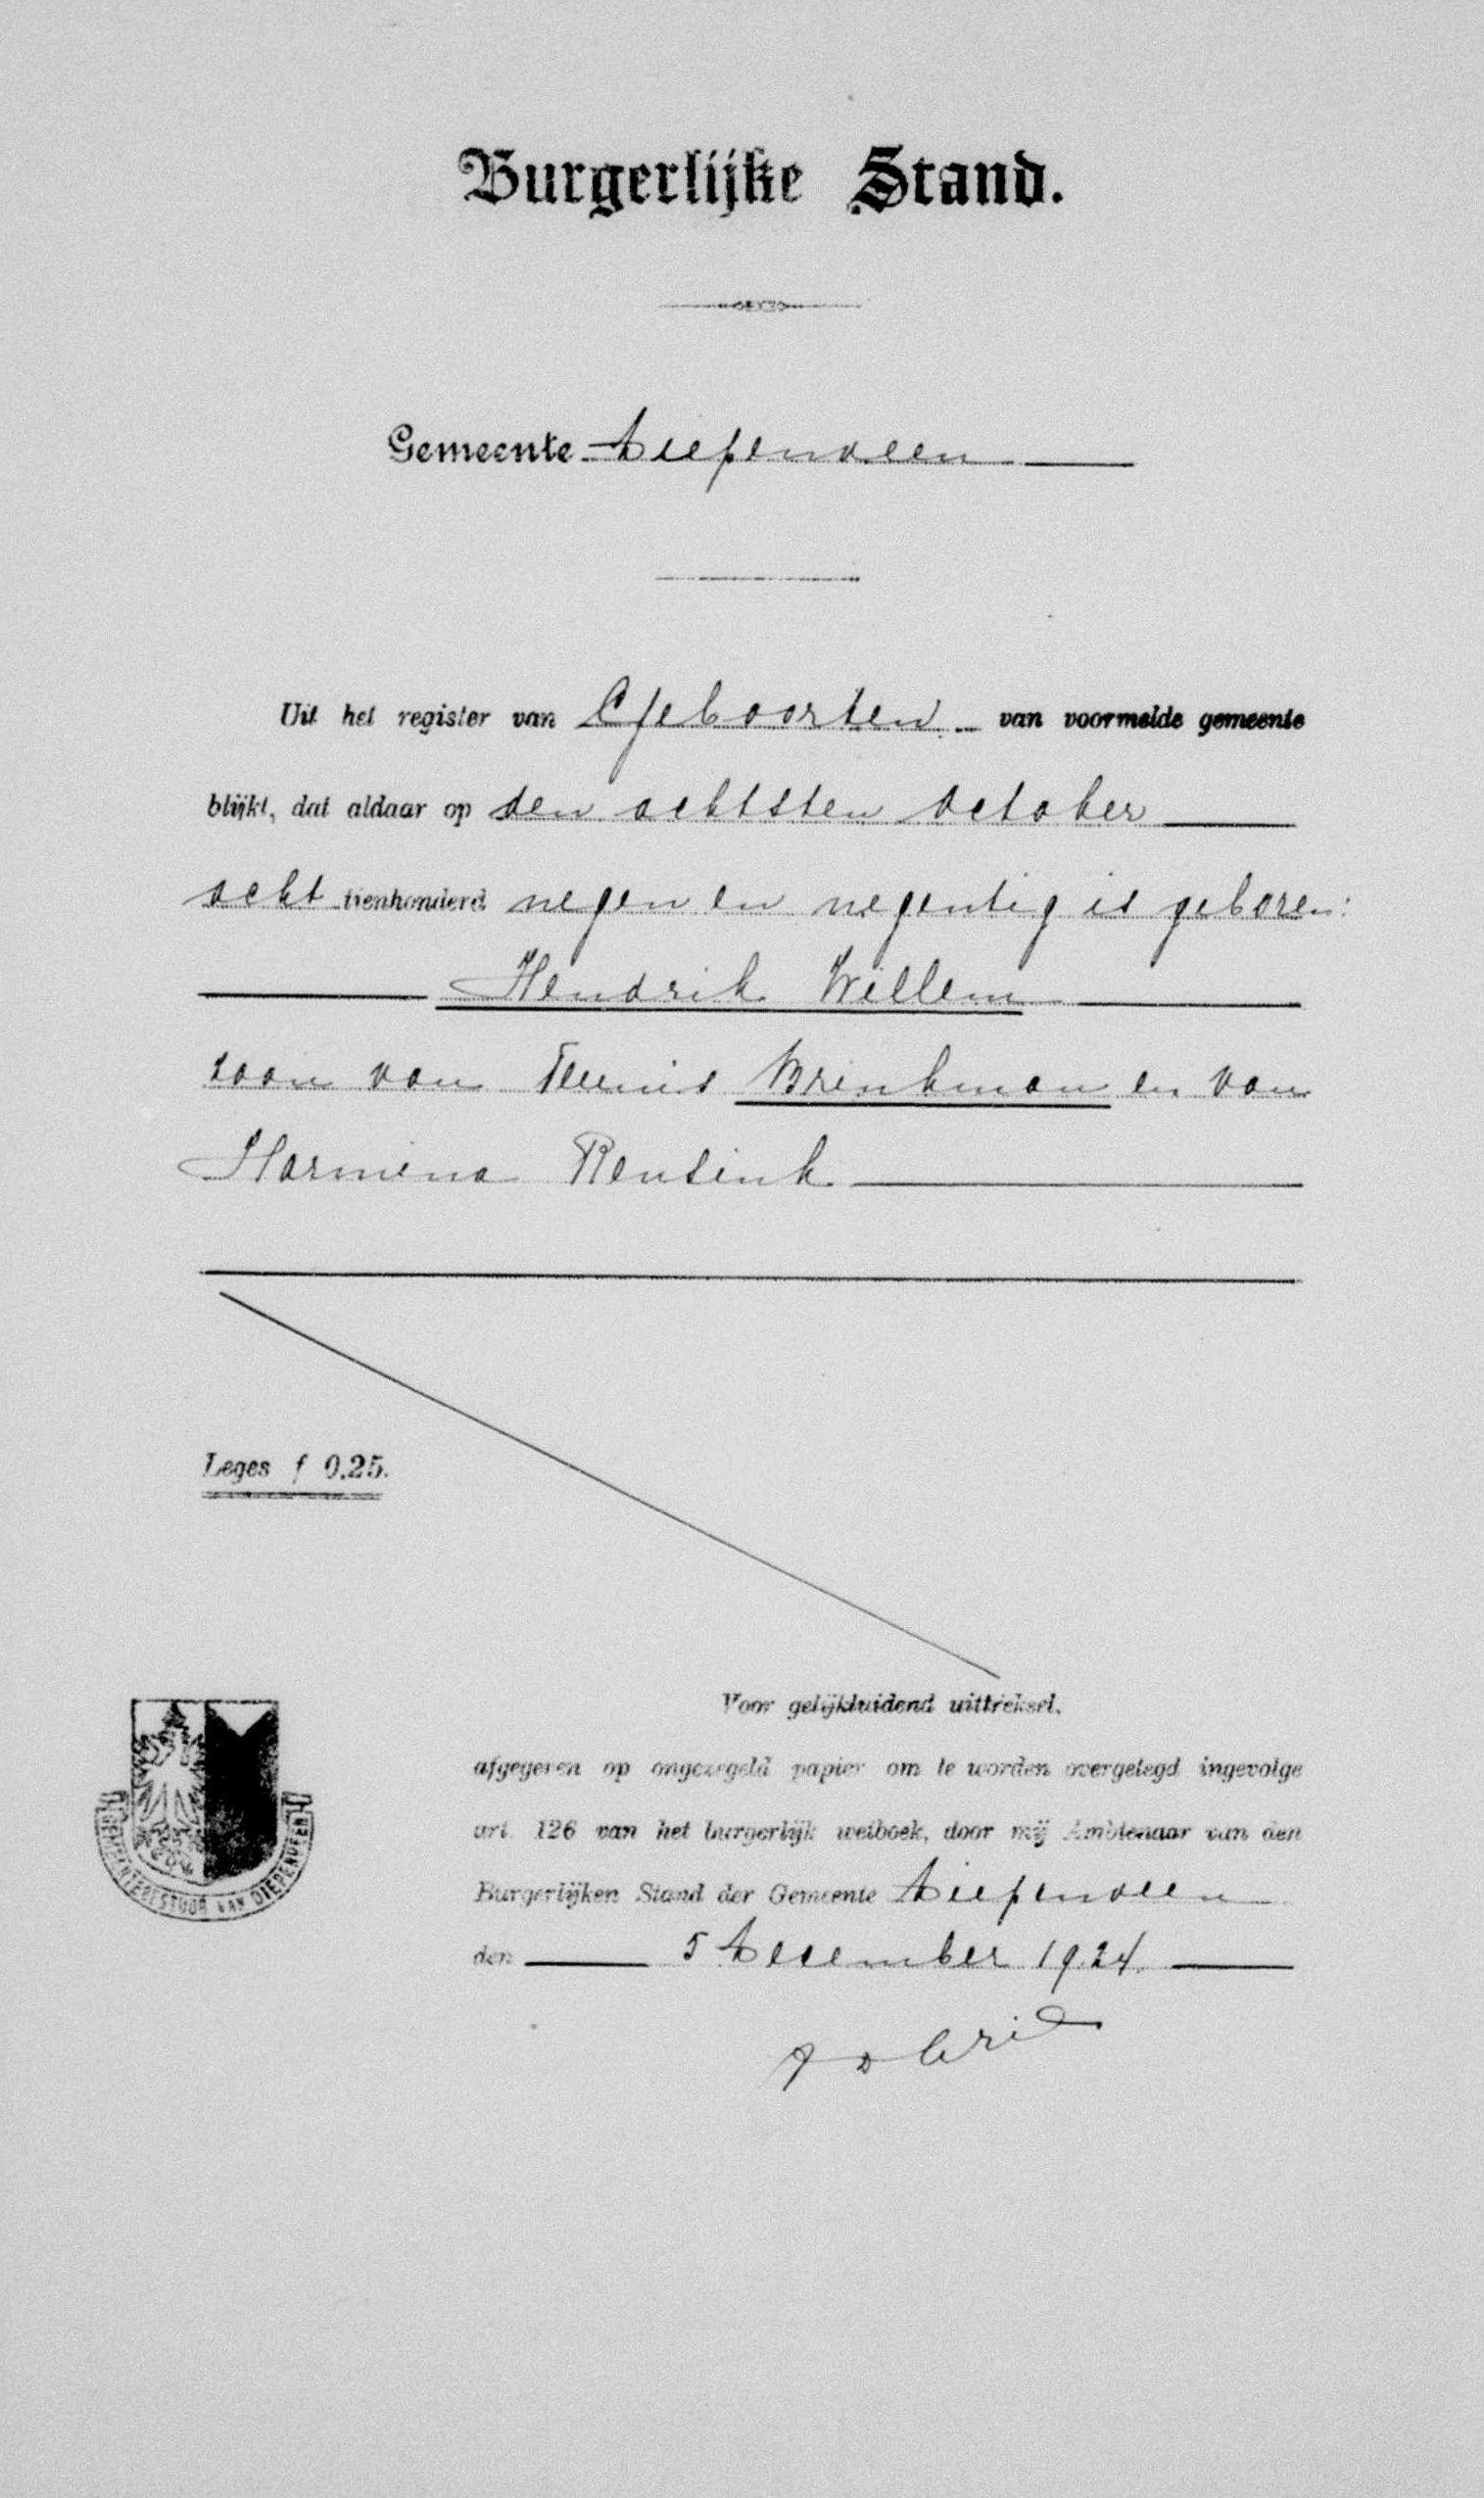 Burgerlijke Stand.
Gemeente Diepenveen
Uit het register van Geboorten van voormelde gemeente
blijkt, dat aldaar op den achtsten October
acht tienhonderd negen en negentig is geboren:
Hendrik Willem
zoon van Teunis Brinkman en van
Harmina Rensink
Leges f 0.25.
Voor gelijkluidend uittreksel,
afgegeven op ongezegeld papier om te worden overgelegd ingevolge
art. 126 van het burgerlijk wetboek, door mij Ambtenaar van den
GEMEENTEBESTUUR VAN DIEPENVEEN
Burgerlijken Stand der Gemeente Diepenveen
den 5 December 1924.